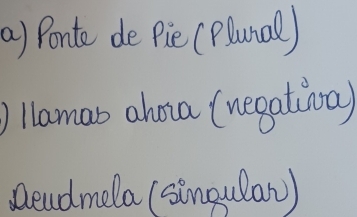 a) Ponte de Pie (Plural)
) llamas ahora (negativa)
Deudmela (singular)